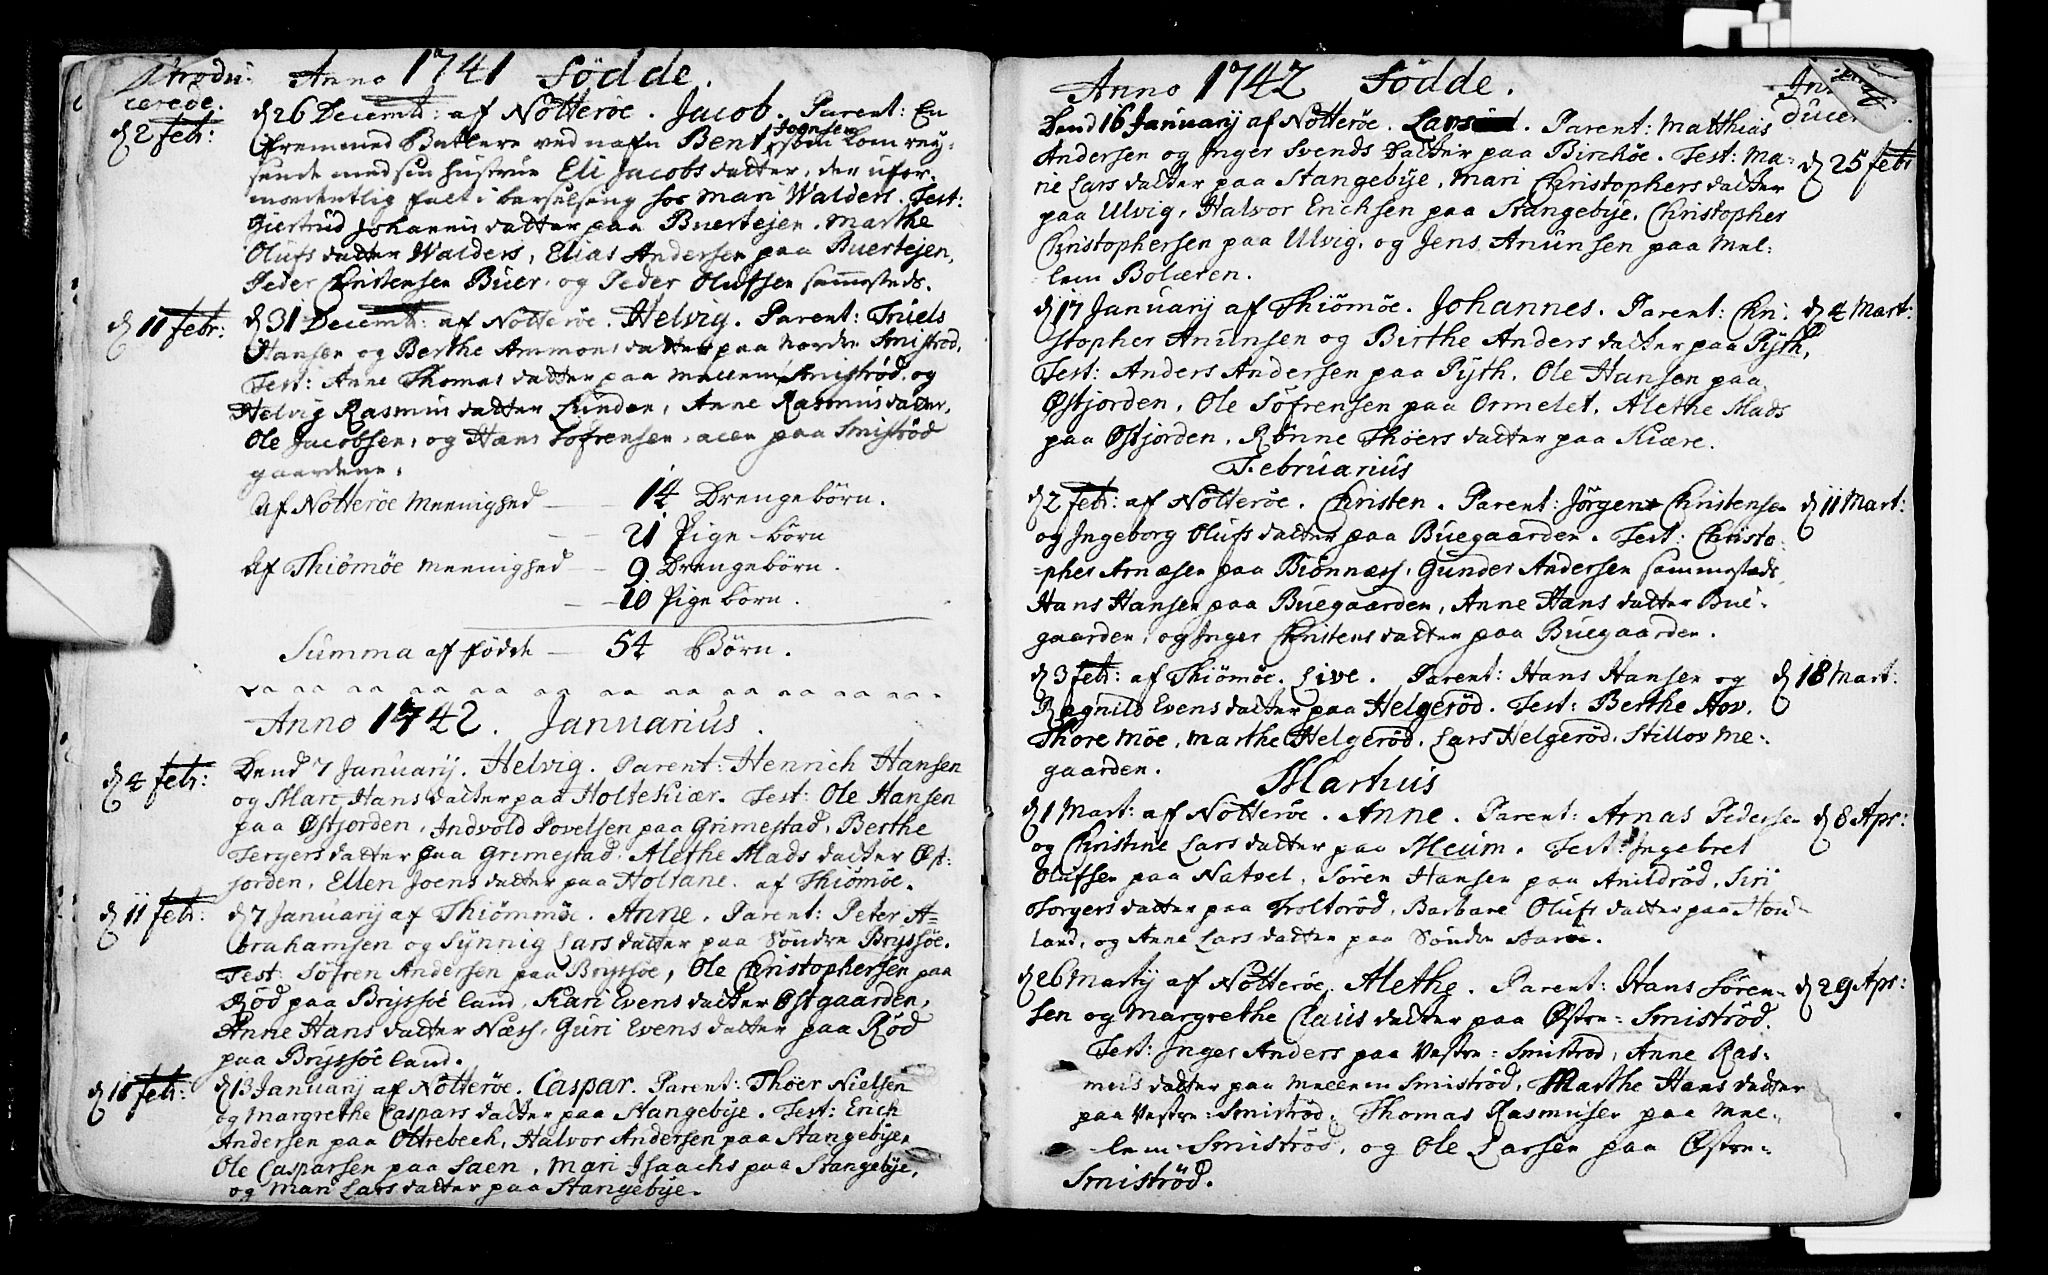 Introdu:
cerede.
Anno 1741 Födde.
d 2 febr:
d 26 Decemb: af Nötteröe. Jacob. Parent: En
fremmed Betlere ved nafn Bent Joensen som kom rey-
sende med sin hustrue Eli Jacobs datter, der ufor-
modentlig falt i barselseng hos Mari Walders. Test:
Giertrud Johannis datter paa Buertejen. Marthe
Olufs datter Walders, Elias Andersen paa Buertejen,
Peder Christensen Buer. og Peder Olufsen sammesteds.
d 11 febr:
d 31 Decemb: af Nötteröe. Helvig. Parent: Truels
Hansen og Berthe Ammons datter paa Nordre Smiströd.
Test: Anne Thomas datter paa mellem Smiströd. og
Helvig Rasmus datter Linden, Anne Rasmus datter,
Ole Jacobsen, og Hans Sofrensen, alle paa Smiströd
gaardene.
af Nötteröe Meenighed — 14 Drengebörn.
— 21 Pige börn
af Thiömöe meenighed — 9 Drengebörn.
— 10 Pige börn.
Summa af födde — 54 Börn.
Anno 1742. Januarius.
d 4 febr:
Dend 7 Januarij. Helvig. Parent: Henrich Hansen
og Mari Hans datter paa Holtekiær. Test: Ole Hansen
paa Østjorden, Indvold Povelsen paa Grimestad, Berthe
Tergers datter paa Grimestad. Alethe Mads datter Øst:
jorden, Ellen Joens datter paa Holtane. af Thiömöe.
d 11 febr:
d 7 Januarij af Thiömmöe. Anne. Parent: Peter A=
brahamsen og Synnig Lars datter paa Söndre Bryssöe.
Test: Söfren Andersen paa Bryssöe, Ole Christophersen paa
Röd paa Bryssöe land. Kari Evens datter Østgaarden,
Anne Hans datter Næss, Guri Evens datter paa Röd
paa Bryssöe land.
d 18 febr:
d 13 Januarij af Nötteröe. Caspar. Parent: Thöer Nielsen
og Margrethe Caspars datter paa Stangebye. Test: Erich
Andersen paa Oltrebech, Halvor Andersen paa Stangebye,
Ole Casparsen paa Saen, Mari Isaachs paa Stangebye,
og Mari Lars datter paa Stangebye.
Anno 1742 Födde.
Dend 16 Januarij af Nötteröe. Lars. Parent: Matthias
Andersen og Inger Svends datter paa Birchöe. Test: Ma-
d 25 febr
rie Lars datter paa Stangebye, Mari Christophers datter
paa Ulvig, Halvor Erichsen paa Stangebye. Christopher
Christophersen paa Ulvig, og Jens Anunsen paa Mel:
lem Bolæren.
d 17 Januarij af Thiömöe. Johannes. Parent: Chri:
d 4 Mart:
stopher Anunsen og Birthe Anders datter paa Pyth,
Test: Anders Andersen paa Pyth, Ole Hansen paa
Østjorden, Ole Söfrensen paa Ormelet, Alethe Mads
paa Østjorden, Rönne Thöers datter paa Kiære.
Februarius
d 2 febr: af Nötteröe. Christen. Parent: Jörgen Christensen
d 11 Mart:
og Ingeborg Olufs datter paa Buegaarden. Test: Christo-
=pher Arnesen paa Biönness, Gunder Andersen sammesteds,
Hans Hansen paa Buegaarden, Anne Hans datter Bue-
gaarden, og Inger Christens datter paa Buegaarden.
d 3 febr: af Thiömöe. Live. Parent: Hans Hansen og
d 18 Mart:
Ragnild Evens datter paa Helgeröd. Test: Berthe Hov.
Thore Möe, Marthe Helgeröd, Lars Helgeröd, Stillov Me-
gaarden.
Martius
d 1 Mart: af Nötteröe. Anne. Parent: Arnas Pedersen
d 8 Apr:
og Christine Lars datter paa Meum. Test: Ingebret
Olufsen paa Natvel, Sören Hansen paa Anildröd, Siri
Torgers datter paa Trolteröd, Barbare Olufs datter paa Hou-
land, og Anne Lars datter paa Söndre Aarö.
d 26 Martij af Nötteröe. Alethe. Parent: Hans Sören-
d 29 Apr:
sen og Margrethe Claus datter paa Østre= Smiströd.
Test: Inger Anders paa Vestre= Smiströd, Anne Ras-
mus datter paa Mellem Smiströd, Marthe Hans datter
paa Vestre= Smiströd, Thomas Rasmusen paa Mel-
lem= Smiströd, og Ole Larsen paa Østre-
Smiströd.